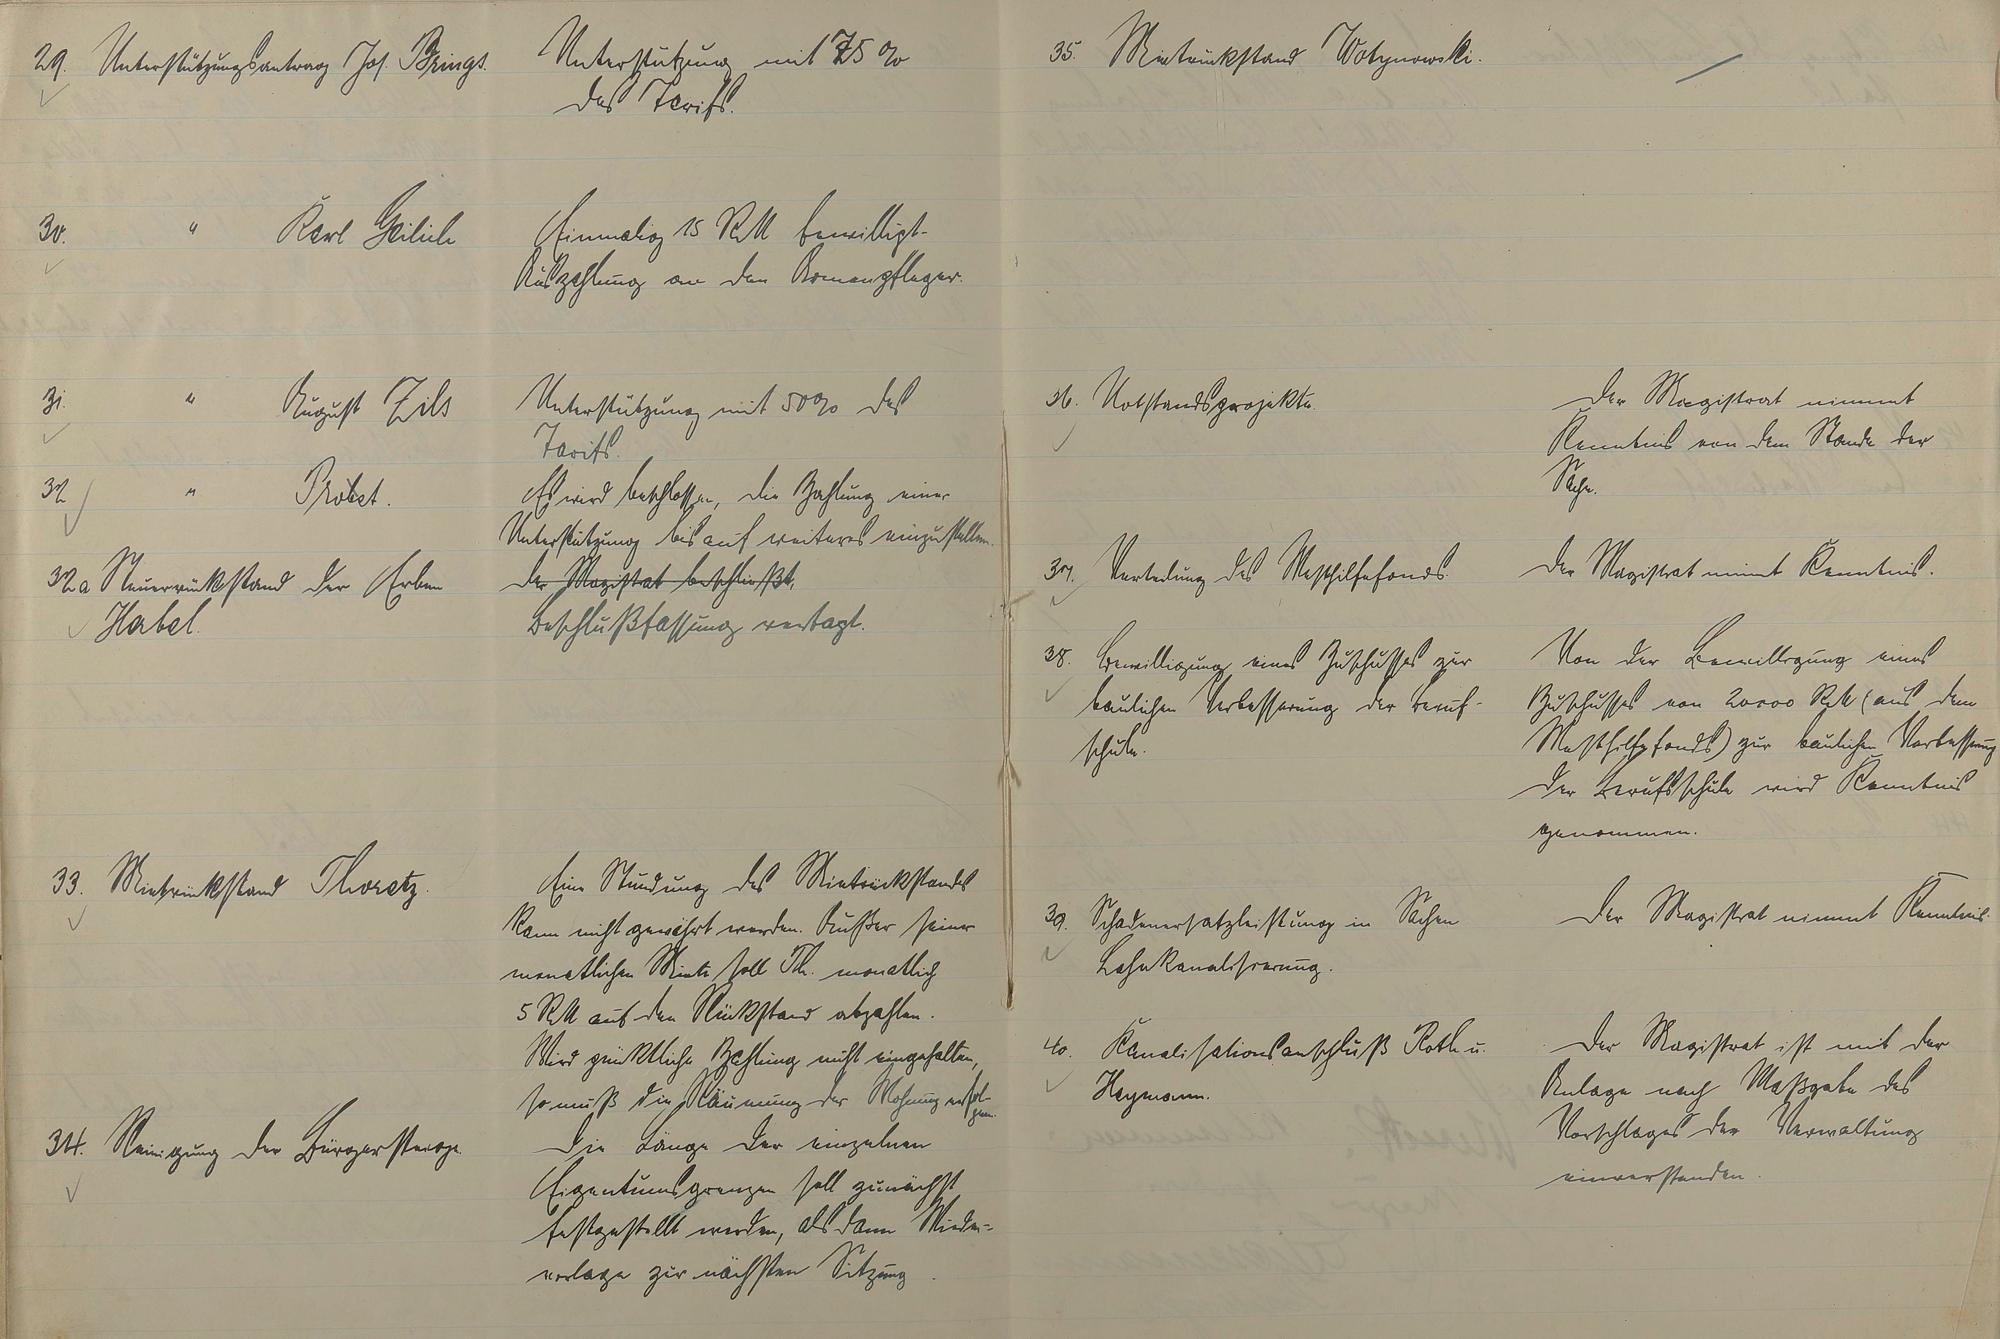 29. Unterstützungsantrag Jos. Brings.
Unterstützung mit 75 %
des Tarifs.
30. " Karl Geilich
Einmalig 15 RM bewilligt.
Auszahlung an den Armenpfleger.
31. " August Zils
Unterstützung mit 50% des
Tarifs.
32. " Probst.
Es wird beschlossen, die Zahlung einer
Unterstützung bis auf weiteres einzustellen.
32a Steuerrückstand der Erben
Habel.
Der Magistrat beschließt,
Beschlußfassung vertagt.
33. Mietrückstand Thoretz.
Eine Stundung des Mietrückstandes
kann nicht gewährt werden. Außer seiner
monatlichen Miete soll Th. monatlich
5 RM auf den Rückstand abzahlen.
Wird pünktliche Zahlung nicht eingehalten,
so muß die Räumung der Wohnung erfol-
gen.
34. Reinigung der Bürgersteige.
Die Länge der einzelnen
Eigentumsgrenzen soll zunächst
festgestellt werden, alsdann Wieder-
vorlage zur nächsten Sitzung.
35. Mietrückstand Wotynowski.
36. Notstandsprojekte
Der Magistrat nimmt
Kenntnis von dem Stande der
Sache.
37. Verteilung des Westhilfefonds.
Der Magistrat nimmt Kenntnis.
38. Bewilligung eines Zuschusses zur
baulichen Verbesserung der Beruf-
schule.
Von der Bewilligung eines
Zuschusses von 20000 RM (aus dem
Westhilfefonds) zur baulichen Verbesserung
der Berufsschule wird Kenntnis
genommen.
39. Schadenersatzleistung in Sachen
Lahnkanalisierung.
Der Magistrat nimmt Kenntnis.
40. Kanalisationsanschluß Roth u.
Heymann.
Der Magistrat ist mit der
Anlage nach Maßgabe des
Vorschlages der Verwaltung
einverstanden.